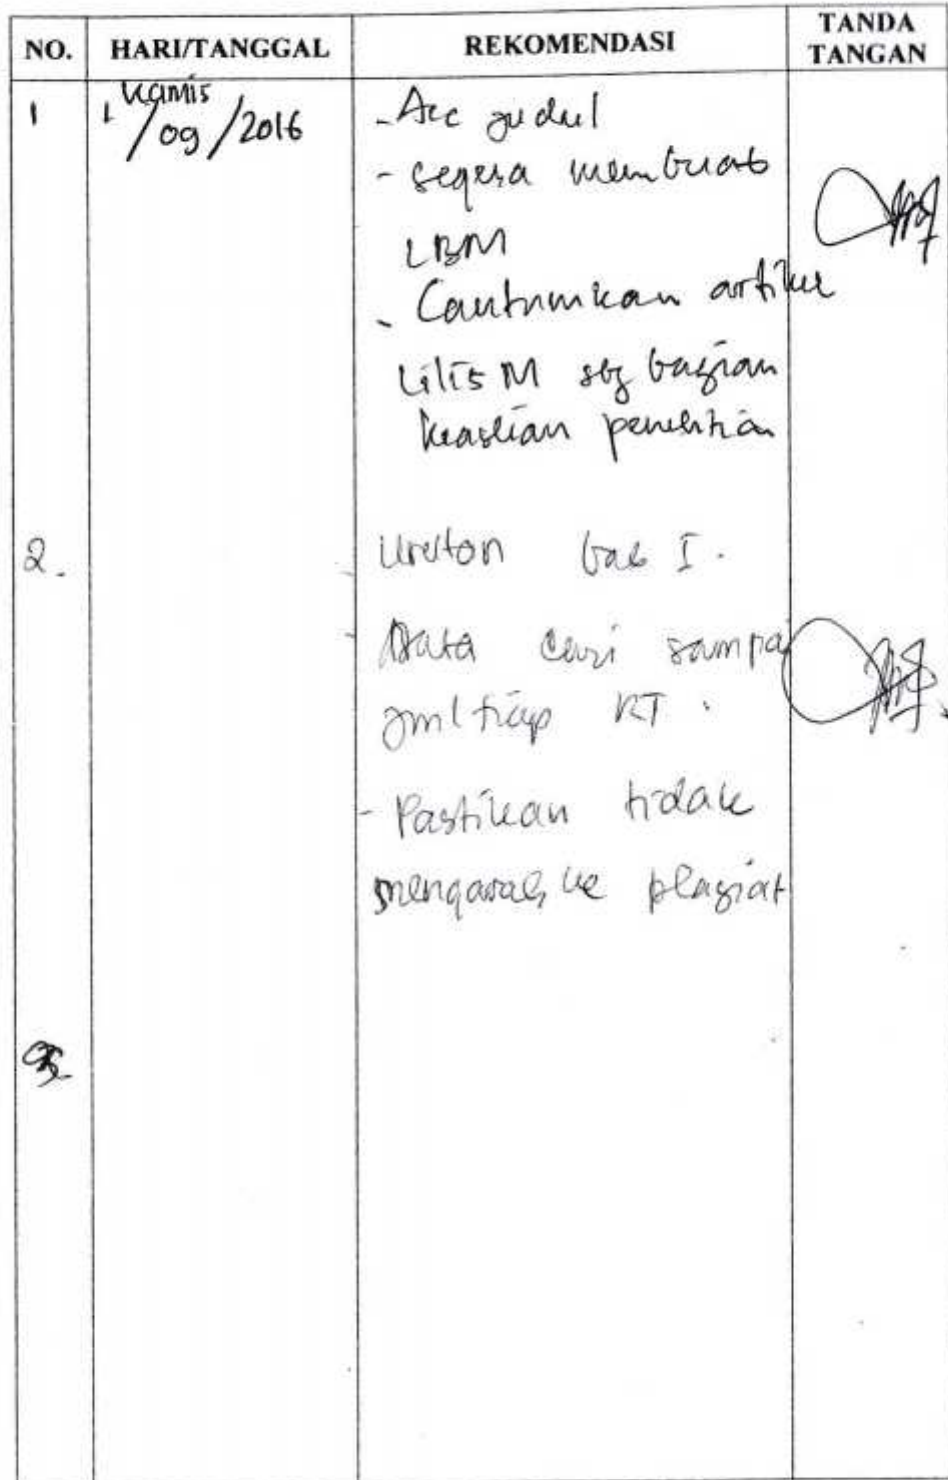 NO. HARI/TANGGAL REKOMENDASI TANDA TANGAN
1 Kamis
1/09/2016
- Acc judul
- segera membuat
LBM
- Cantumkan artikel
Lilis M sbg bagian
keaslian penelitian
2. - Urutan bab I.
- Data cari sampai
jml tiap RT.
- Pastikan tidak
mengarah ke plagiat